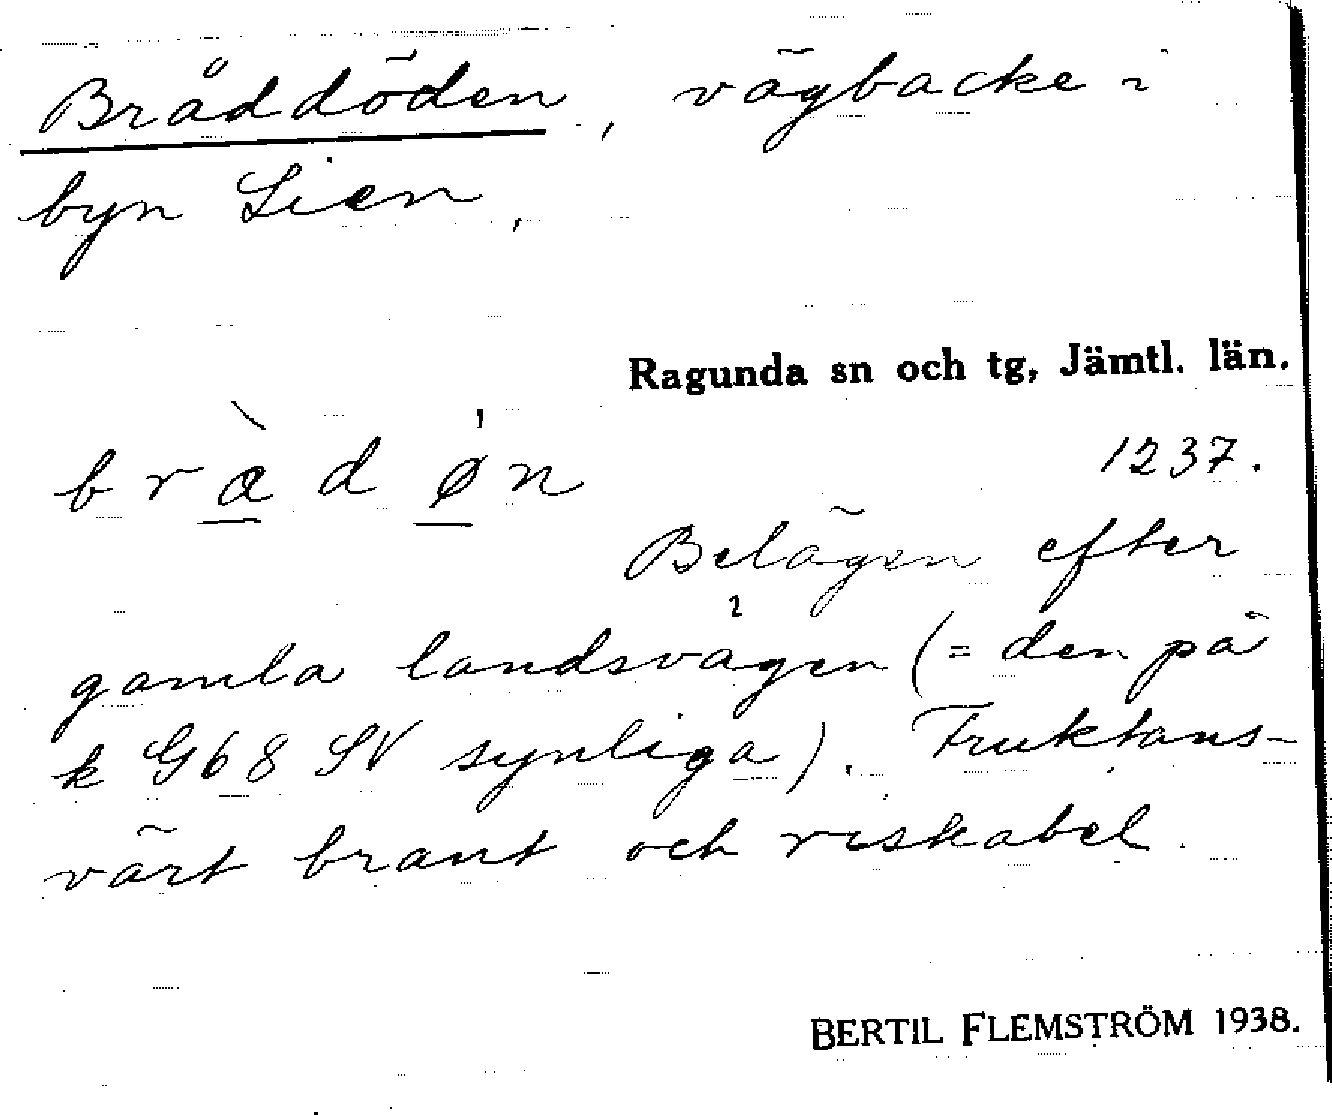 Bråddöden, vägbacke i
byn Lien.
Ragunda sn och tg, Jämtl. län.
bràdǿn
1237.
Belägen efter
gamla landsvägen (= den på
k G68 SV synliga). Fruktans-
värt brant och riskabel.
BERTIL FLEMSTRÖM 1938.